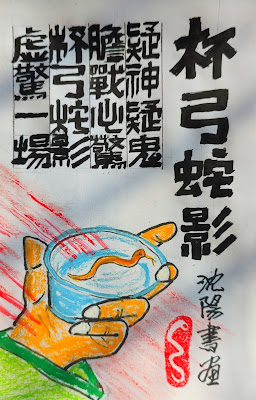 杯弓蛇影
疑神疑鬼
膽戰心驚
杯弓蛇影
虛驚一場
沈陽書畫